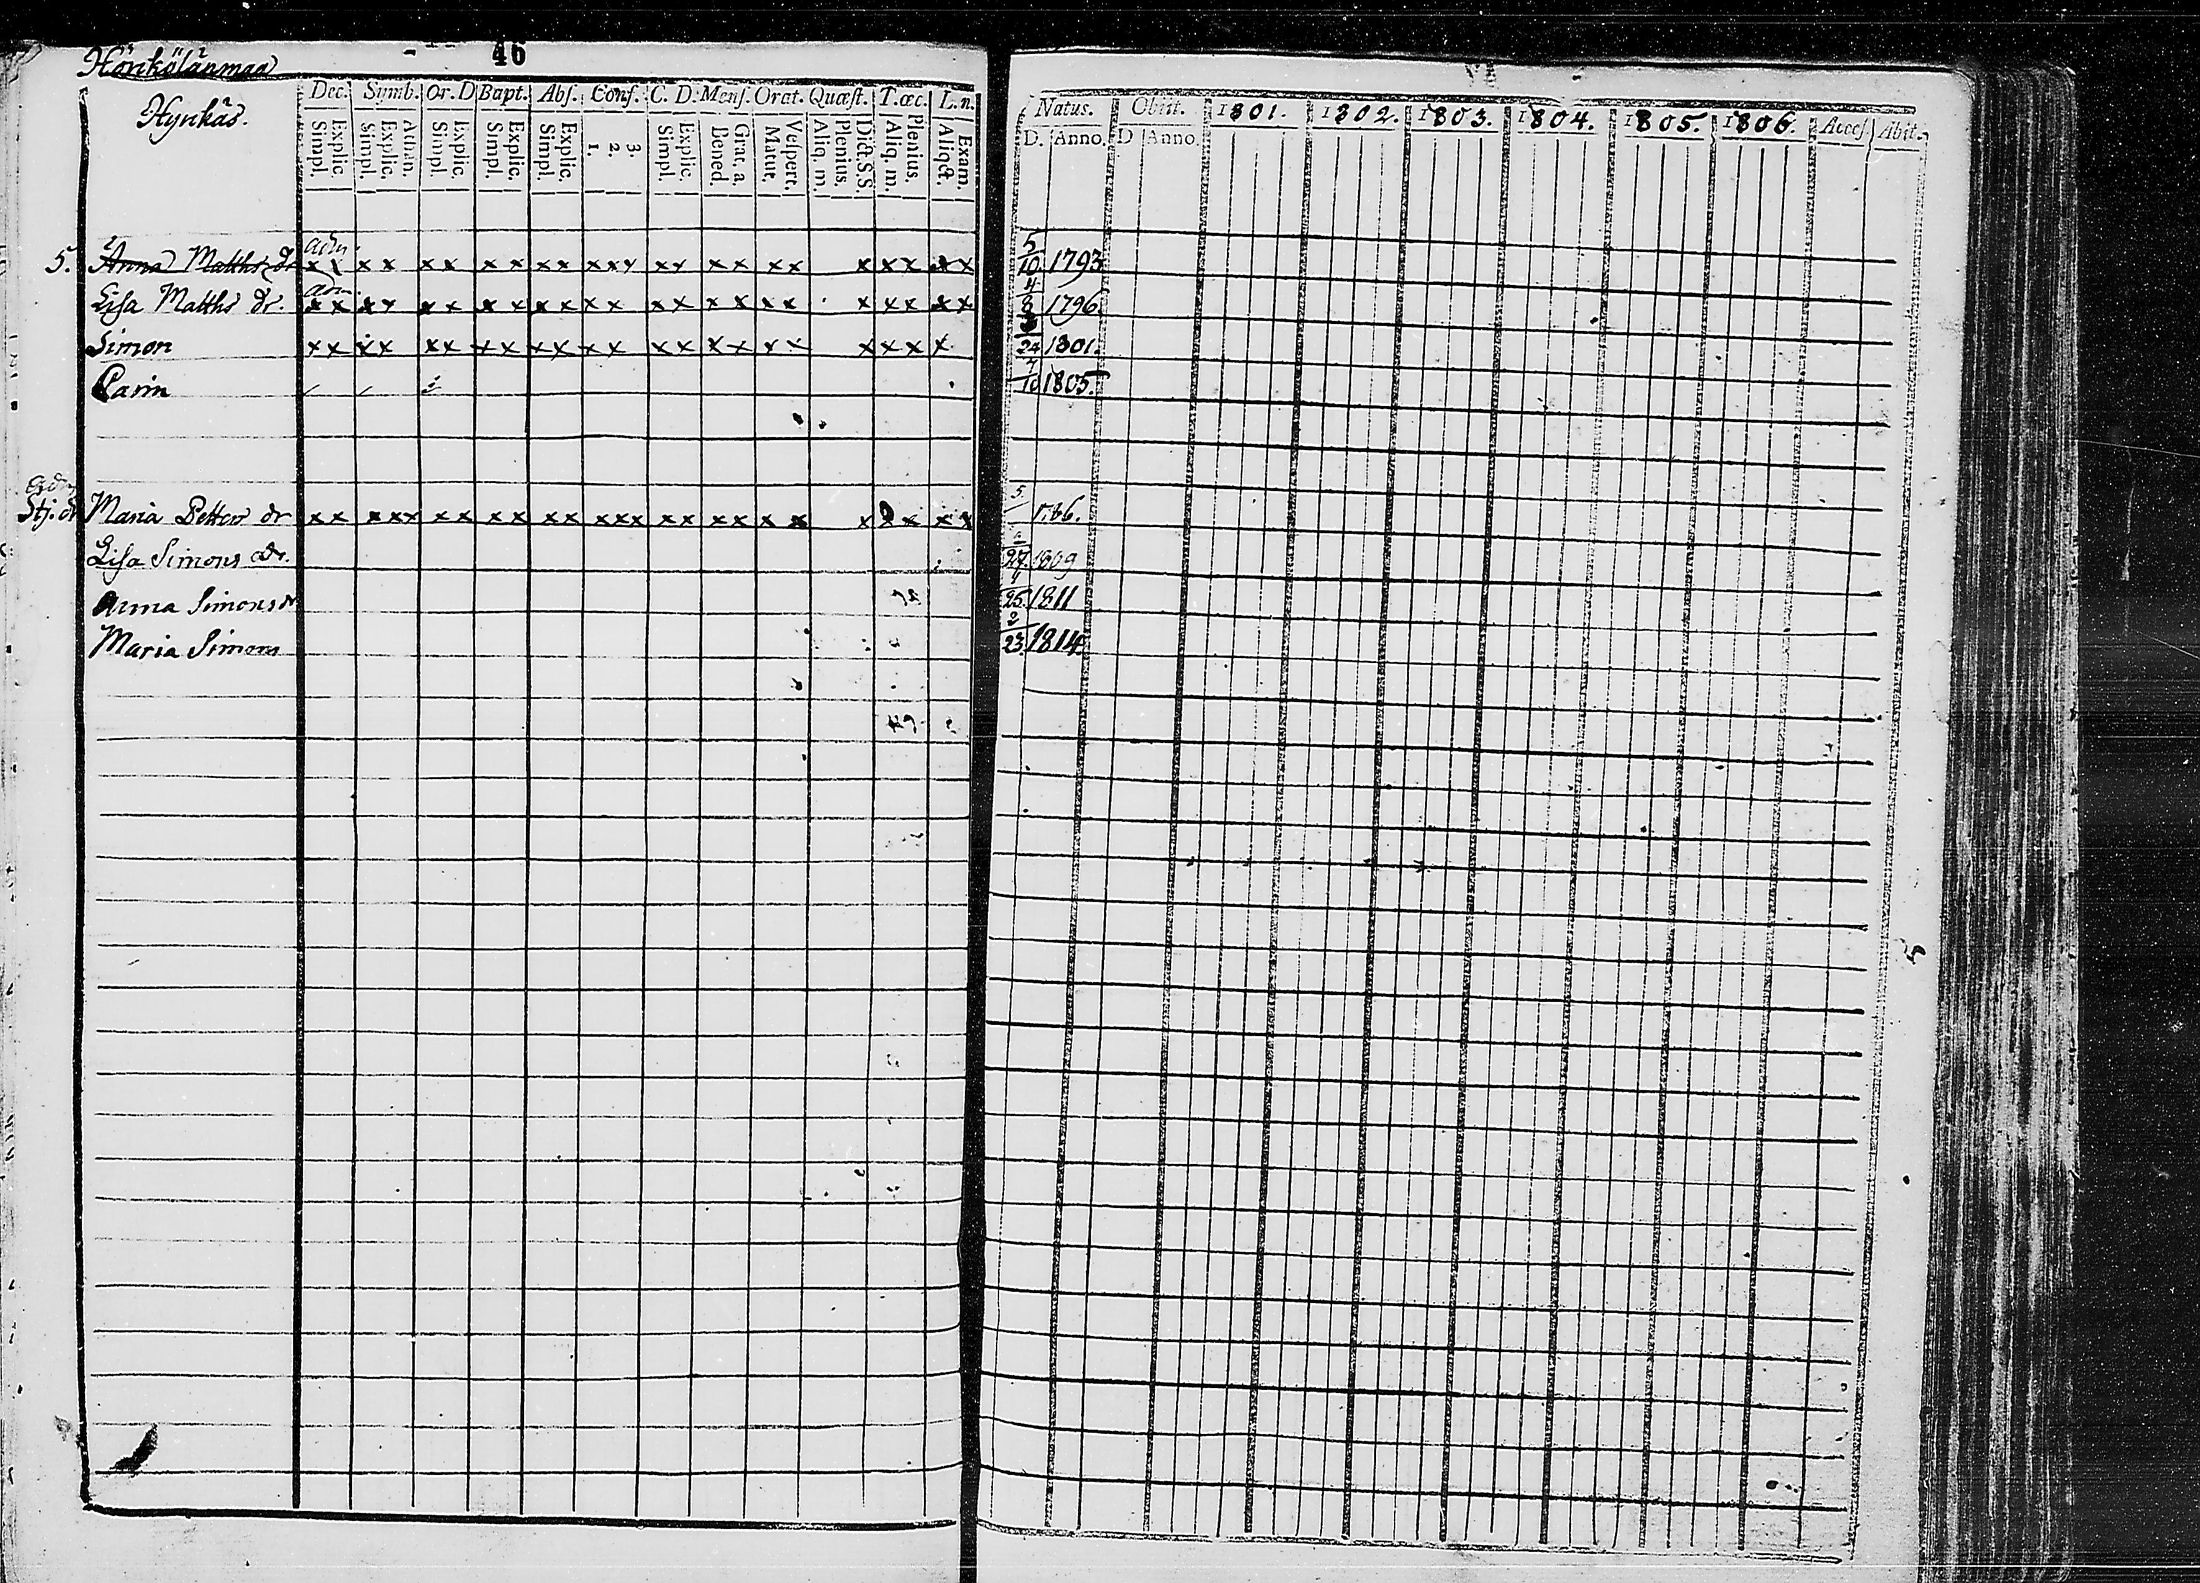 46
Hörikölänmaa
Hynkäs.
Dec. Symb. Or. D Bapt. Abs. Conf. C. D. Mens. Orat. Quæst. T. œc. L. n.
Simpl. Explic. Simpl. Explic. Athan. Simpl. Explic. Simpl. Explic. Simpl. Explic. 1. 2. 3. Simpl. Explic. Bened. Grat. a. Matut. Vespert. Aliq. m. Plenius. Dict. S.S Aliq. m. Plenius. Aliqd. Exam.
Natus. Obiit. 1801. 1802. 1803. 1804. 1805. 1806. Access. Abiit.
D. Anno. D Anno.
adm.
5. Anna Matths dr x x x x x x x x x x x x x x x x x x x x x x x x 5/10 1793
adm.
Lisa Matths dr. x x x x x x x x x x x x x x x x x x x x x x x 4/8 1796.
Simon x x x x x x x x x x x x x x x x x x x x x x 24 1801.
Carin 1805.
Stj. dr Maria Petters dr x x x x x x x x x x x x x x x x x x x x x x x x x 5
Lisa Simons dr. 27. 1809
Anna Simons dr 4/25. 1811
Maria Simons 2/23. 1814.